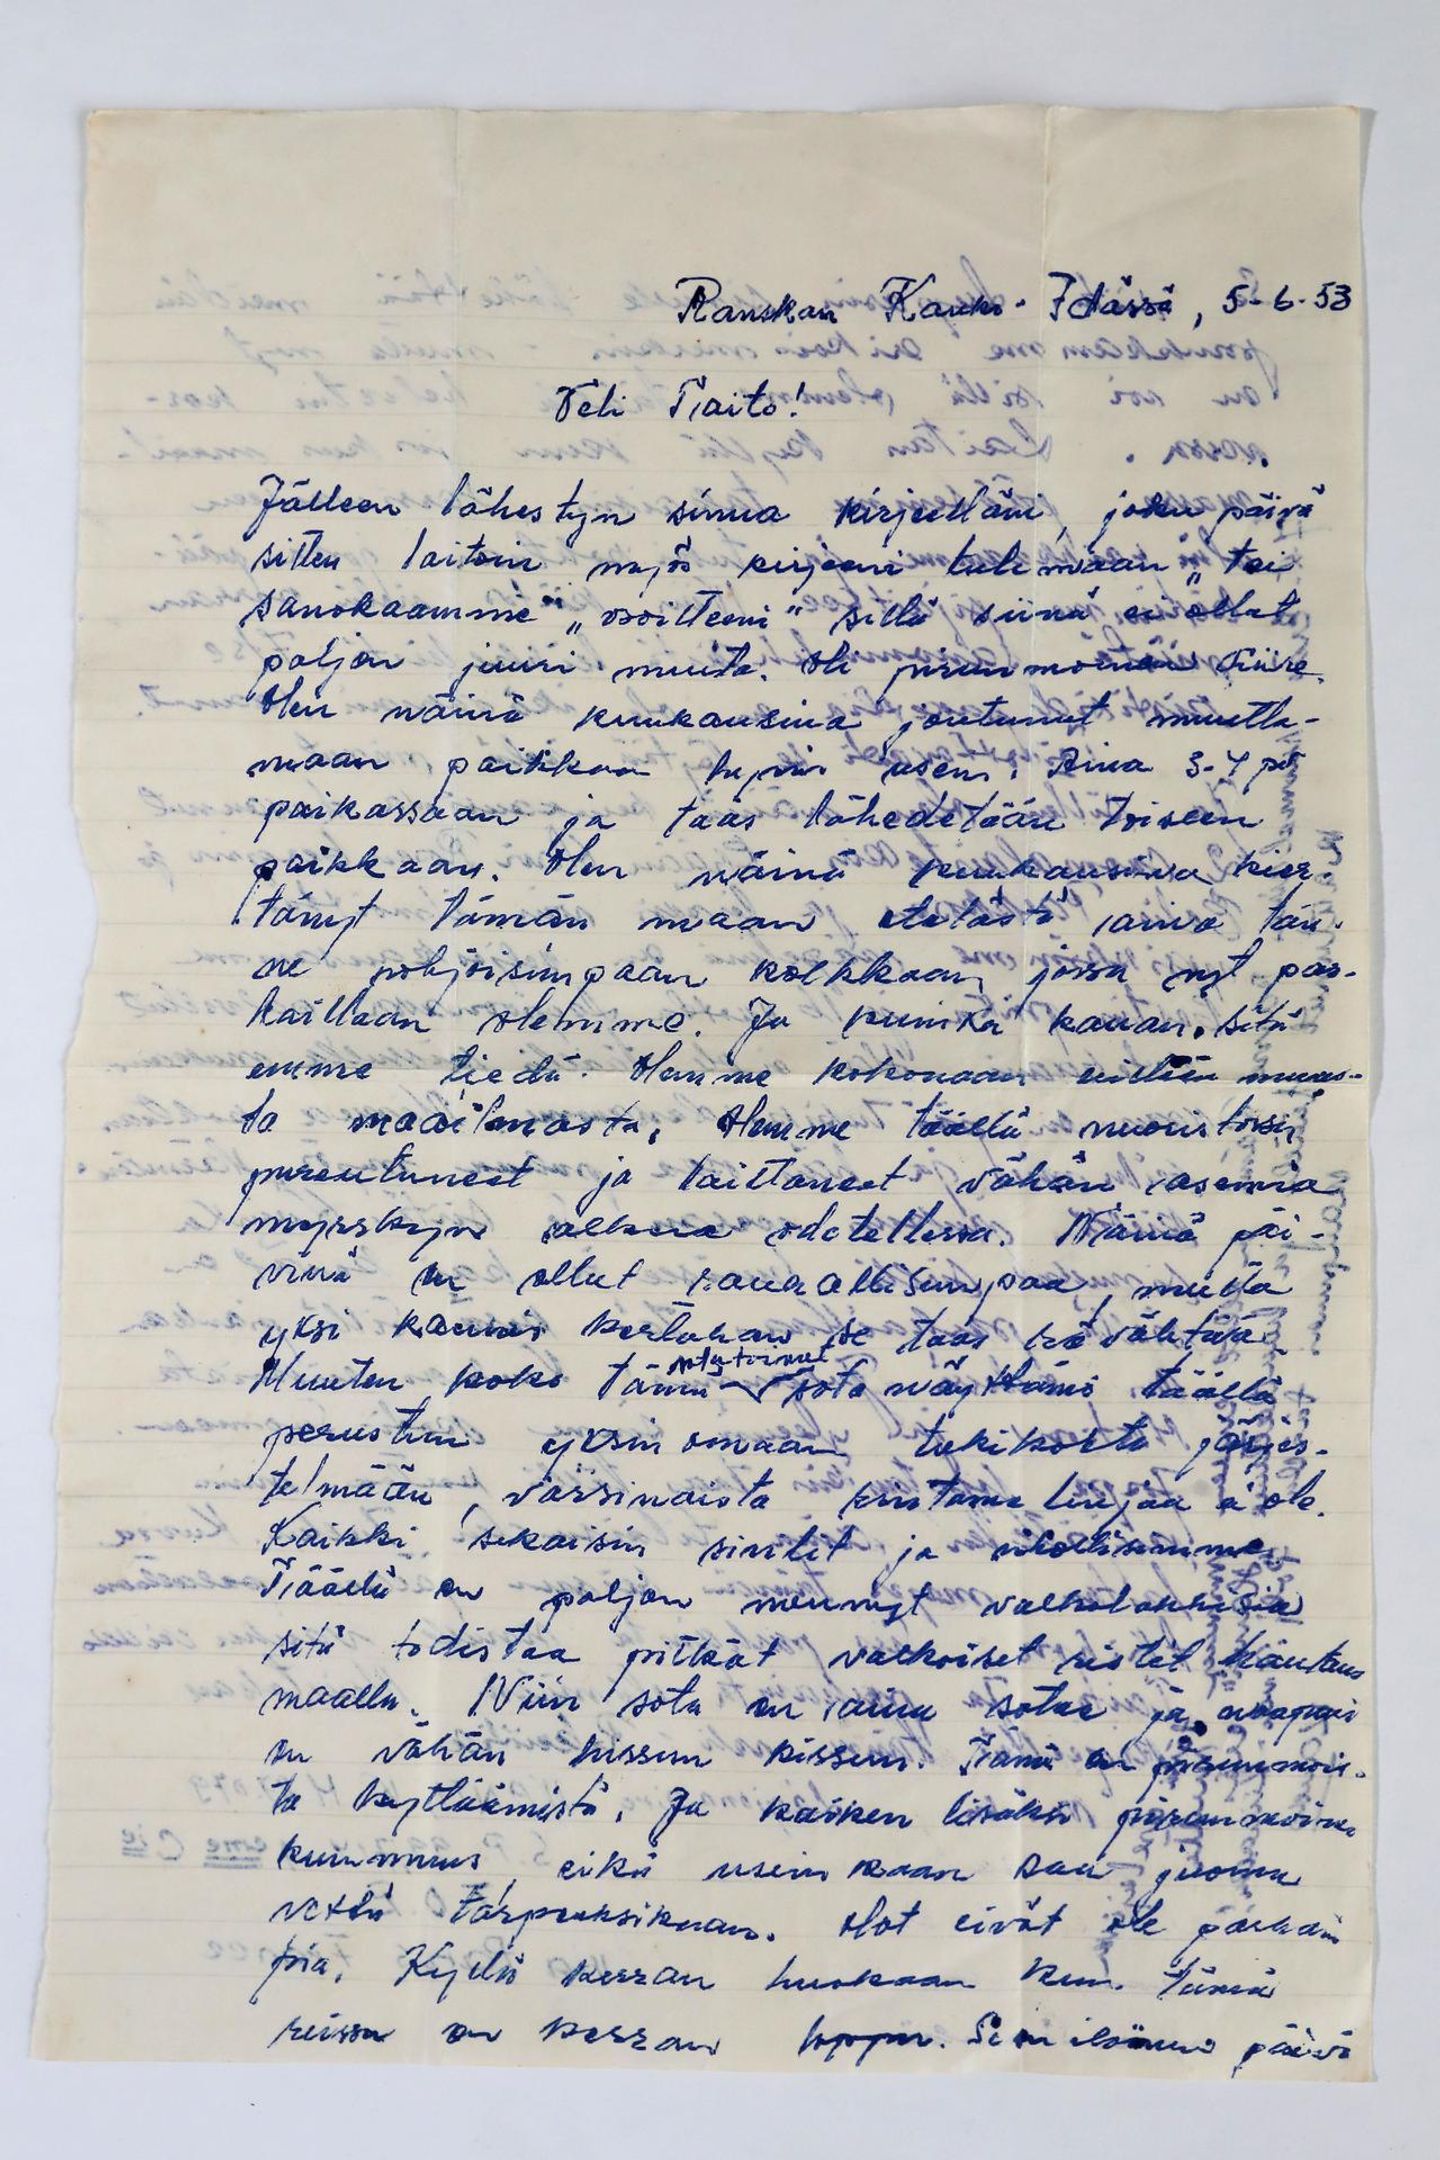 Ranskan Kauko-Idässä, 5-6-53
Veli Taito!
Jälleen lähestyn sinua kirjelläni, joku päivä
sitten laitoin myös kirjeeni tulemaan „ tai
sanokaamme „osoitteeni" sillä siinä ei ollut
paljon juuri muuta. Oli pirunmoinen kiire.
Olen näinä kuukausina joutunut muutta-
maan paikkaa hyvin usein. Aina 3-4 pv
paikassaan ja taas lähedetään toiseen
paikkaan. Olen näinä kuukausina kier-
tänyt tämän maan etelästä aina tän-
ne pohjoisimpaan kolkkaan, jossa nyt par-
haillaan olemme. Ja kuinka kauan, sitä
emme tiedä. Olemme kokonaan muus-
ta maailmasta. Olemme täällä vuoristossa
pureutuneet ja laittaneet vähän asemia
myrskyn alkua odotellessa. Näinä päi-
vinä on ollut rauhallisimpaa, mutta
yksi kaunis kertahan se taas
Muuten koko tämä sotatoimet sota näyttämö täällä
perustuu yksinomaan tukikohta järjes-
telmään, varsinaista rintama linjaa ei ole.
Kaikki sekaisin siviilit ja vihollisemme.
Täällä on paljon mennyt valkolakkisia
sitä todistaa pitkät valkoiset ristit hautaus
maalla. Niin sota on aina sotaa ja
on vähän hissun kissun. Tämä on pirunmois-
ta kyttäämistä. Ja kaiken lisäksi pirunmoinen
kuumuus, eikä usein kaan saa juoma
vettä tarpeeksikaan. Olot eivät ole parhaim
pia. Kyllä kerran huokaan kun tämä
reissu on kerran loppu. Se on iloinen päivä